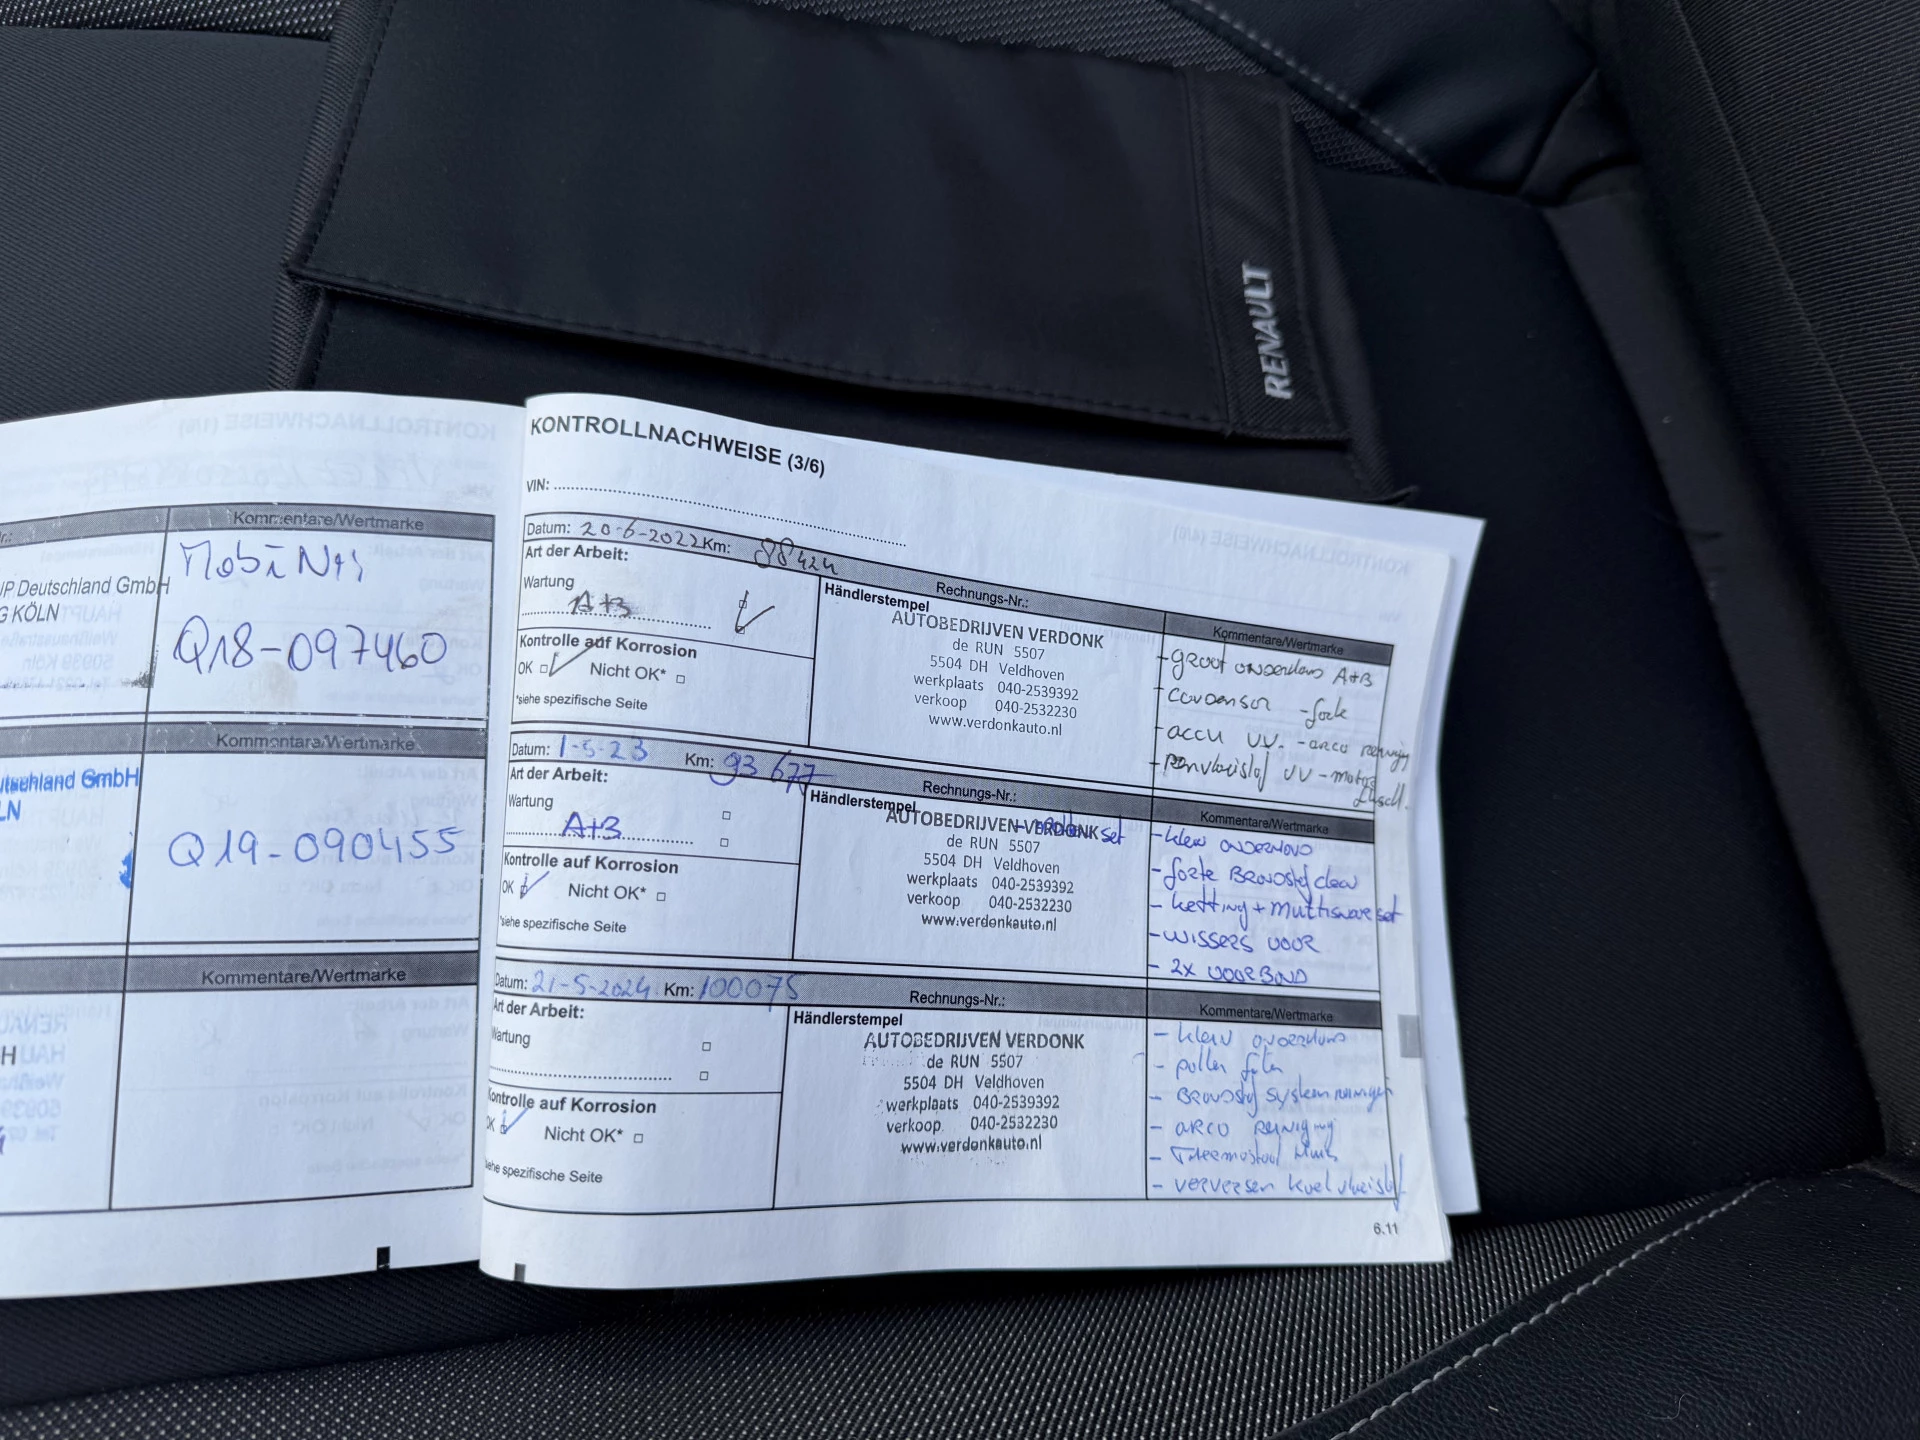 RENAULT
Kommentare/Wertmarke
UP Deutschland GmbH
G KÖLN
Q18-097460
Kommentare/Wertmarke
utschland GmbH
LN
Q19-090455
Kommentare/Wertmarke
KONTROLLNACHWEISE (3/6)
VIN:
Datum: 20-6-2022 Km: 88424
Rechnungs-Nr.:
Art der Arbeit:
Wartung
A+B
Kontrolle auf Korrosion
OK Nicht OK*
*siehe spezifische Seite
Händlerstempel
AUTOBEDRIJVEN VERDONK
de RUN 5507
5504 DH Veldhoven
werkplaats 040-2539392
verkoop 040-2532230
www.verdonkauto.nl
Kommentare/Wertmarke
- groot onderhoud A+B
- condensor - forte
- accu vv. - airco reiniging
- remvloeistof vv - motor
Datum: 1-5-23 Km: 93677
Rechnungs-Nr.:
Art der Arbeit:
Wartung
A+B
Kontrolle auf Korrosion
OK Nicht OK*
*siehe spezifische Seite
Händlerstempel
AUTOBEDRIJVEN VERDONK set
de RUN 5507
5504 DH Veldhoven
werkplaats 040-2539392
verkoop 040-2532230
www.verdonkauto.nl
Kommentare/Wertmarke
- klein onderhoud
- forte Brandstof clean
- ketting + multisnaar set
- wissers voor
- 2x voorband
Datum: 21-5-2024 Km: 100075
Rechnungs-Nr.:
Art der Arbeit:
Wartung
Kontrolle auf Korrosion
OK Nicht OK*
siehe spezifische Seite
Händlerstempel
AUTOBEDRIJVEN VERDONK
de RUN 5507
5504 DH Veldhoven
werkplaats 040-2539392
verkoop 040-2532230
www.verdonkauto.nl
Kommentare/Wertmarke
- klein onderhoud
- pollen filter
- Brandstof systeem reinigen
- airco reiniging
- Thermostaat
- verversen koelvloeistof
6.11